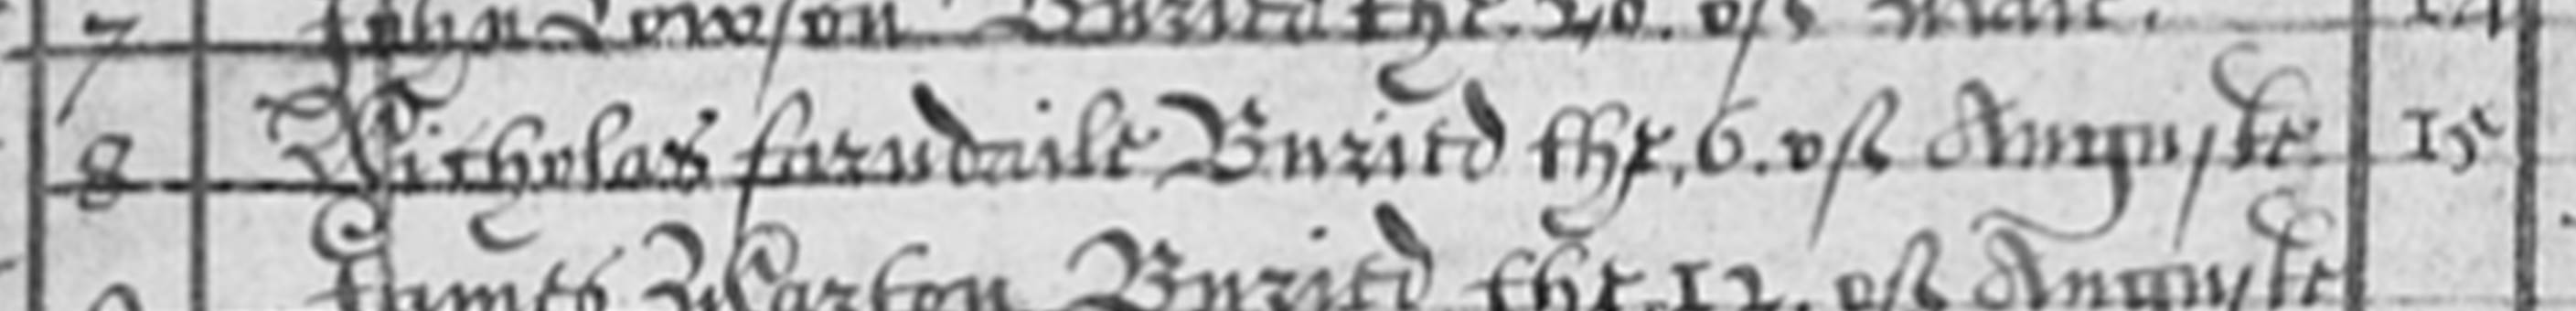 7 John Lowson Buried the. 20. off Maie. 14
8 Nicholas farndaile Buried the, 6. off Auguste 15
James Warton Buried the 12. off Auguste